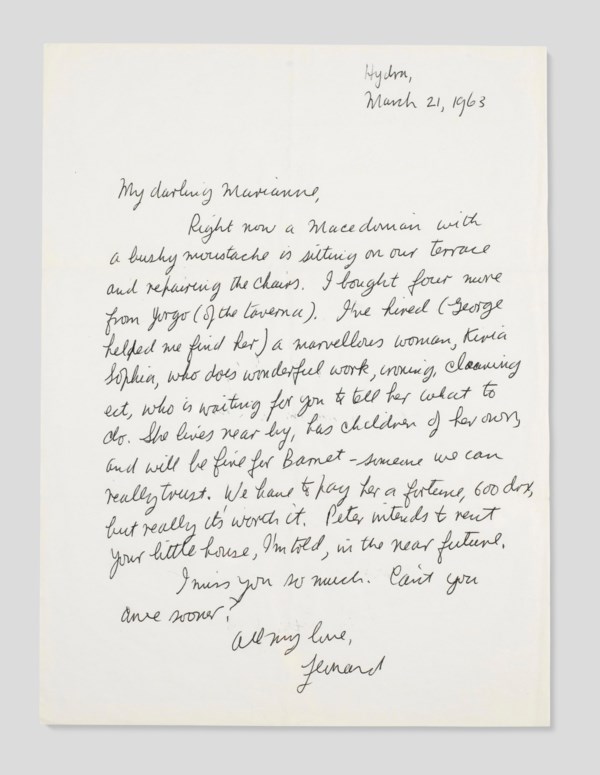 Hydra,
March 21, 1963
My darling Marianne,
Right now a Macedonian with
a bushy moustache is sitting on our terrace
and repairing the chairs. I bought four more
from Yorgo (of the taverna). I've hired (George
helped me find her) a marvellous woman, Kiria
Sophia, who does wonderful work, ironing, cleaning
ect, who is waiting for you to tell her what to
do. She lives near by, has children of her own,
and will be fine for Barnet - someone we can
really trust. We have to pay her a fortune, 600 drx,
but really it's worth it. Peter intends to rent
your little house, I'm told, in the near future.
I miss you so much. Can't you
arrive sooner?
All my love,
Leonard